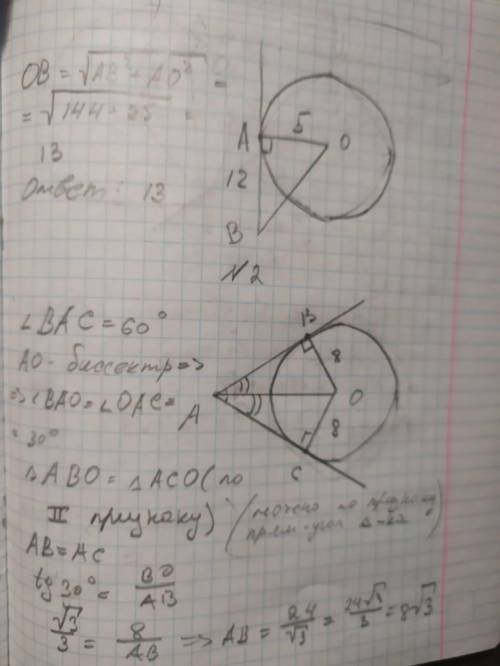 OB = √AB² + AO² =
= √144 + 25 =
13
Ответ: 13
A
5
O
12
B
N2
∠BAC = 60°
AO - биссектр =>
=> ∠BAO = ∠OAC =
= 30°
B
8
A
O
8
C
△ABO = △ACO (по
II признаку)
(можно по признаку
прям-угол △-ка)
AB = AC
tg 30° = BO/AB
√3/3 = 8/AB => AB = 24/√3 = 24√3/3 = 8√3